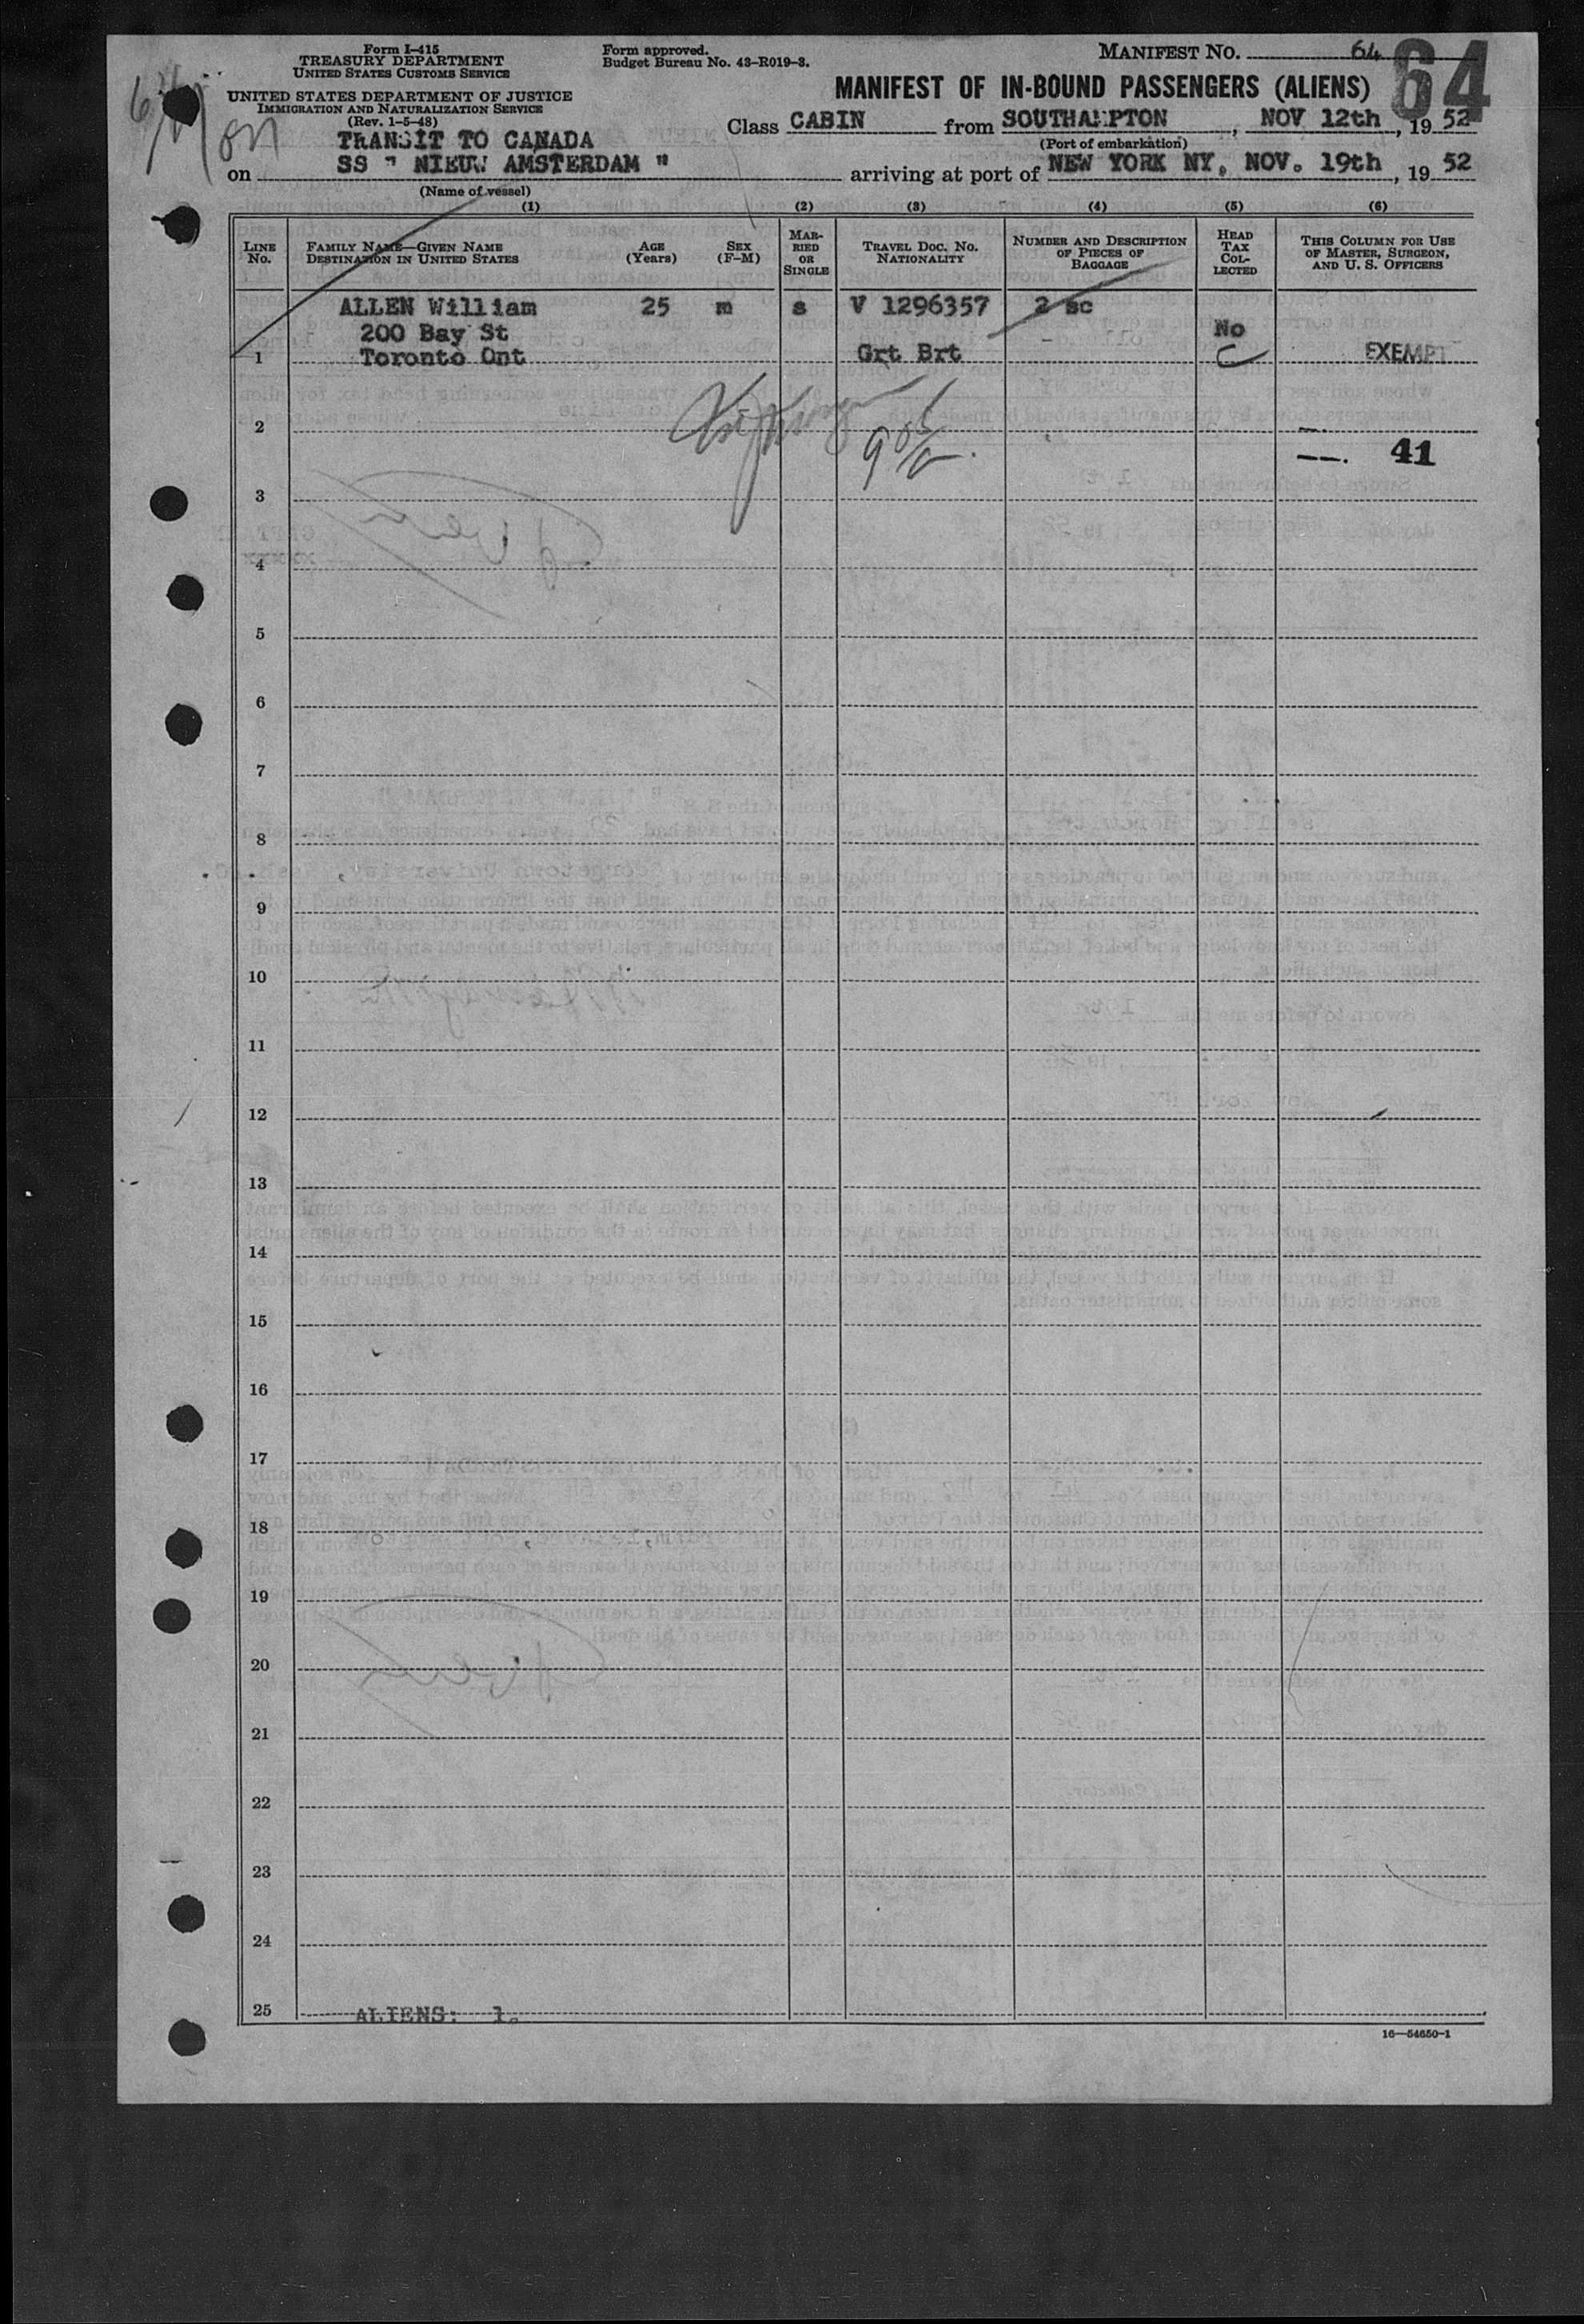 Form I-415
TREASURY DEPARTMENT
UNITED STATES CUSTOMS SERVICE
UNITED STATES DEPARTMENT OF JUSTICE
IMMIGRATION AND NATURALIZATION SERVICE
(Rev. 1-5-48)
Form approved.
Budget Bureau No. 43-R019-3.
MANIFEST NO. 64
64
MANIFEST OF IN-BOUND PASSENGERS (ALIENS)
Class CABIN from SOUTHAMPTON, NOV 12th, 19 52
(Port of embarkation)
TRANSIT TO CANADA
on SS " NIEUW AMSTERDAM " arriving at port of NEW YORK NY, NOV. 19th, 19 52
(Name of vessel)
(1) (2) (3) (4) (5) (6)
LINE No. FAMILY NAME—GIVEN NAME DESTINATION IN UNITED STATES AGE (Years) SEX (F-M) MARRIED OR SINGLE TRAVEL DOC. NO. NATIONALITY NUMBER AND DESCRIPTION OF PIECES OF BAGGAGE HEAD TAX COLLECTED THIS COLUMN FOR USE OF MASTER, SURGEON, AND U. S. OFFICERS
ALLEN William 25 m s V 1296357 2 sc
200 Bay St No
1 Toronto Ont Grt Brt EXEMPT
2
41
3
4
5
6
7
8
9
10
11
12
13
14
15
16
17
18
19
20
21
22
23
24
25 ALIENS: 1.
16—54650-1